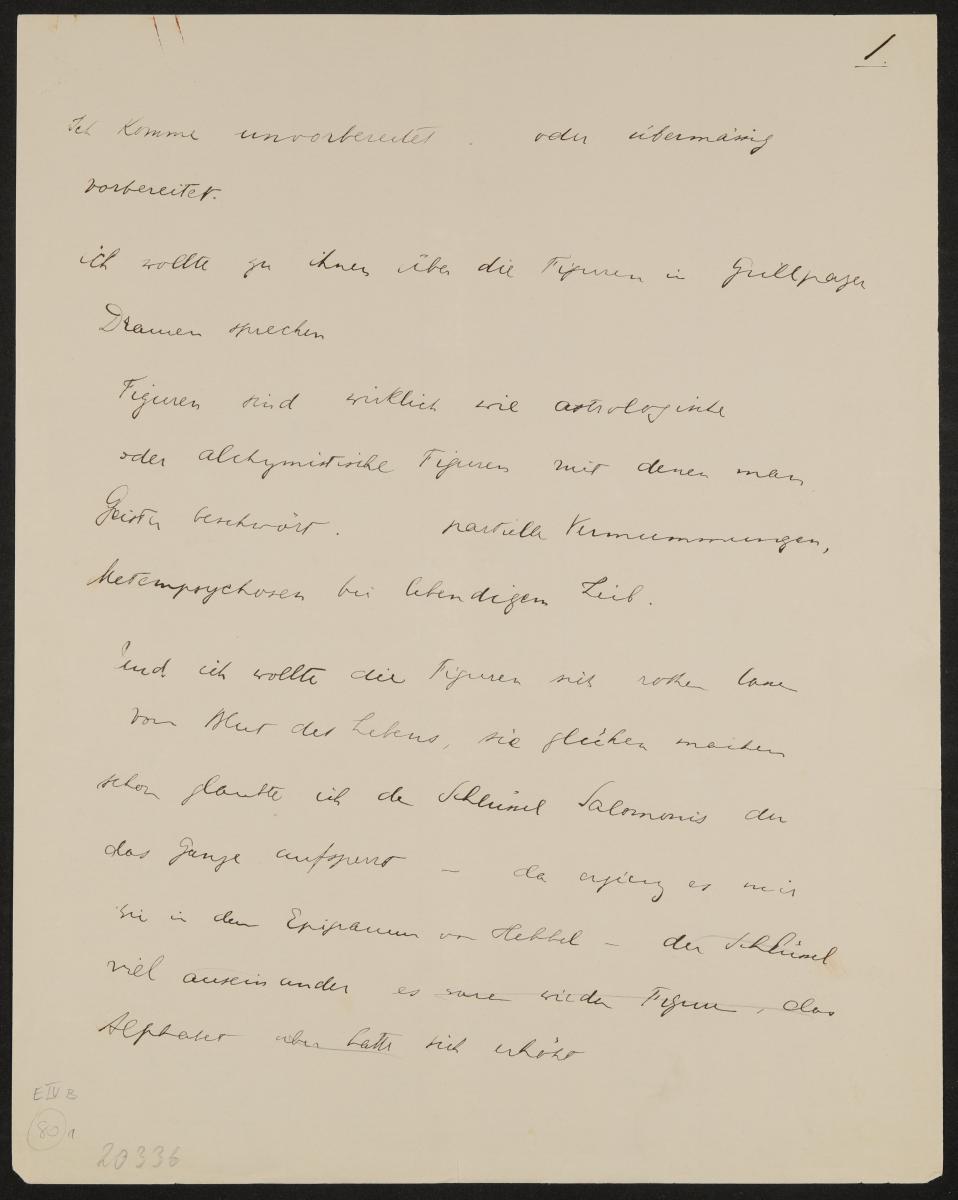 1.
Ich komme unvorbereitet . oder übermässig
vorbereitet.
ich wollte zu ihnen über die Figuren in Grillparzer
Dramen sprechen
Figuren sind wirklich wie astrologische
oder alchymistische Figuren mit denen man
Geister beschwört. partielle Vermummungen,
Metempsychosen bei lebendigem Leib.
Und ich wollte die Figuren sich rothen lassen
vom Blut des Lebens, sie glühen machen
schon glaubte ich den Schlüssel Salomonis der
das Ganze aufsperrt — da ergieng es mir
wie in dem Epigramm von Hebbel — der Schlüssel
viel auseinander es waren wieder Figuren, das
Alphabet aber hatte sich erhöht
E IV B
80 1
20336